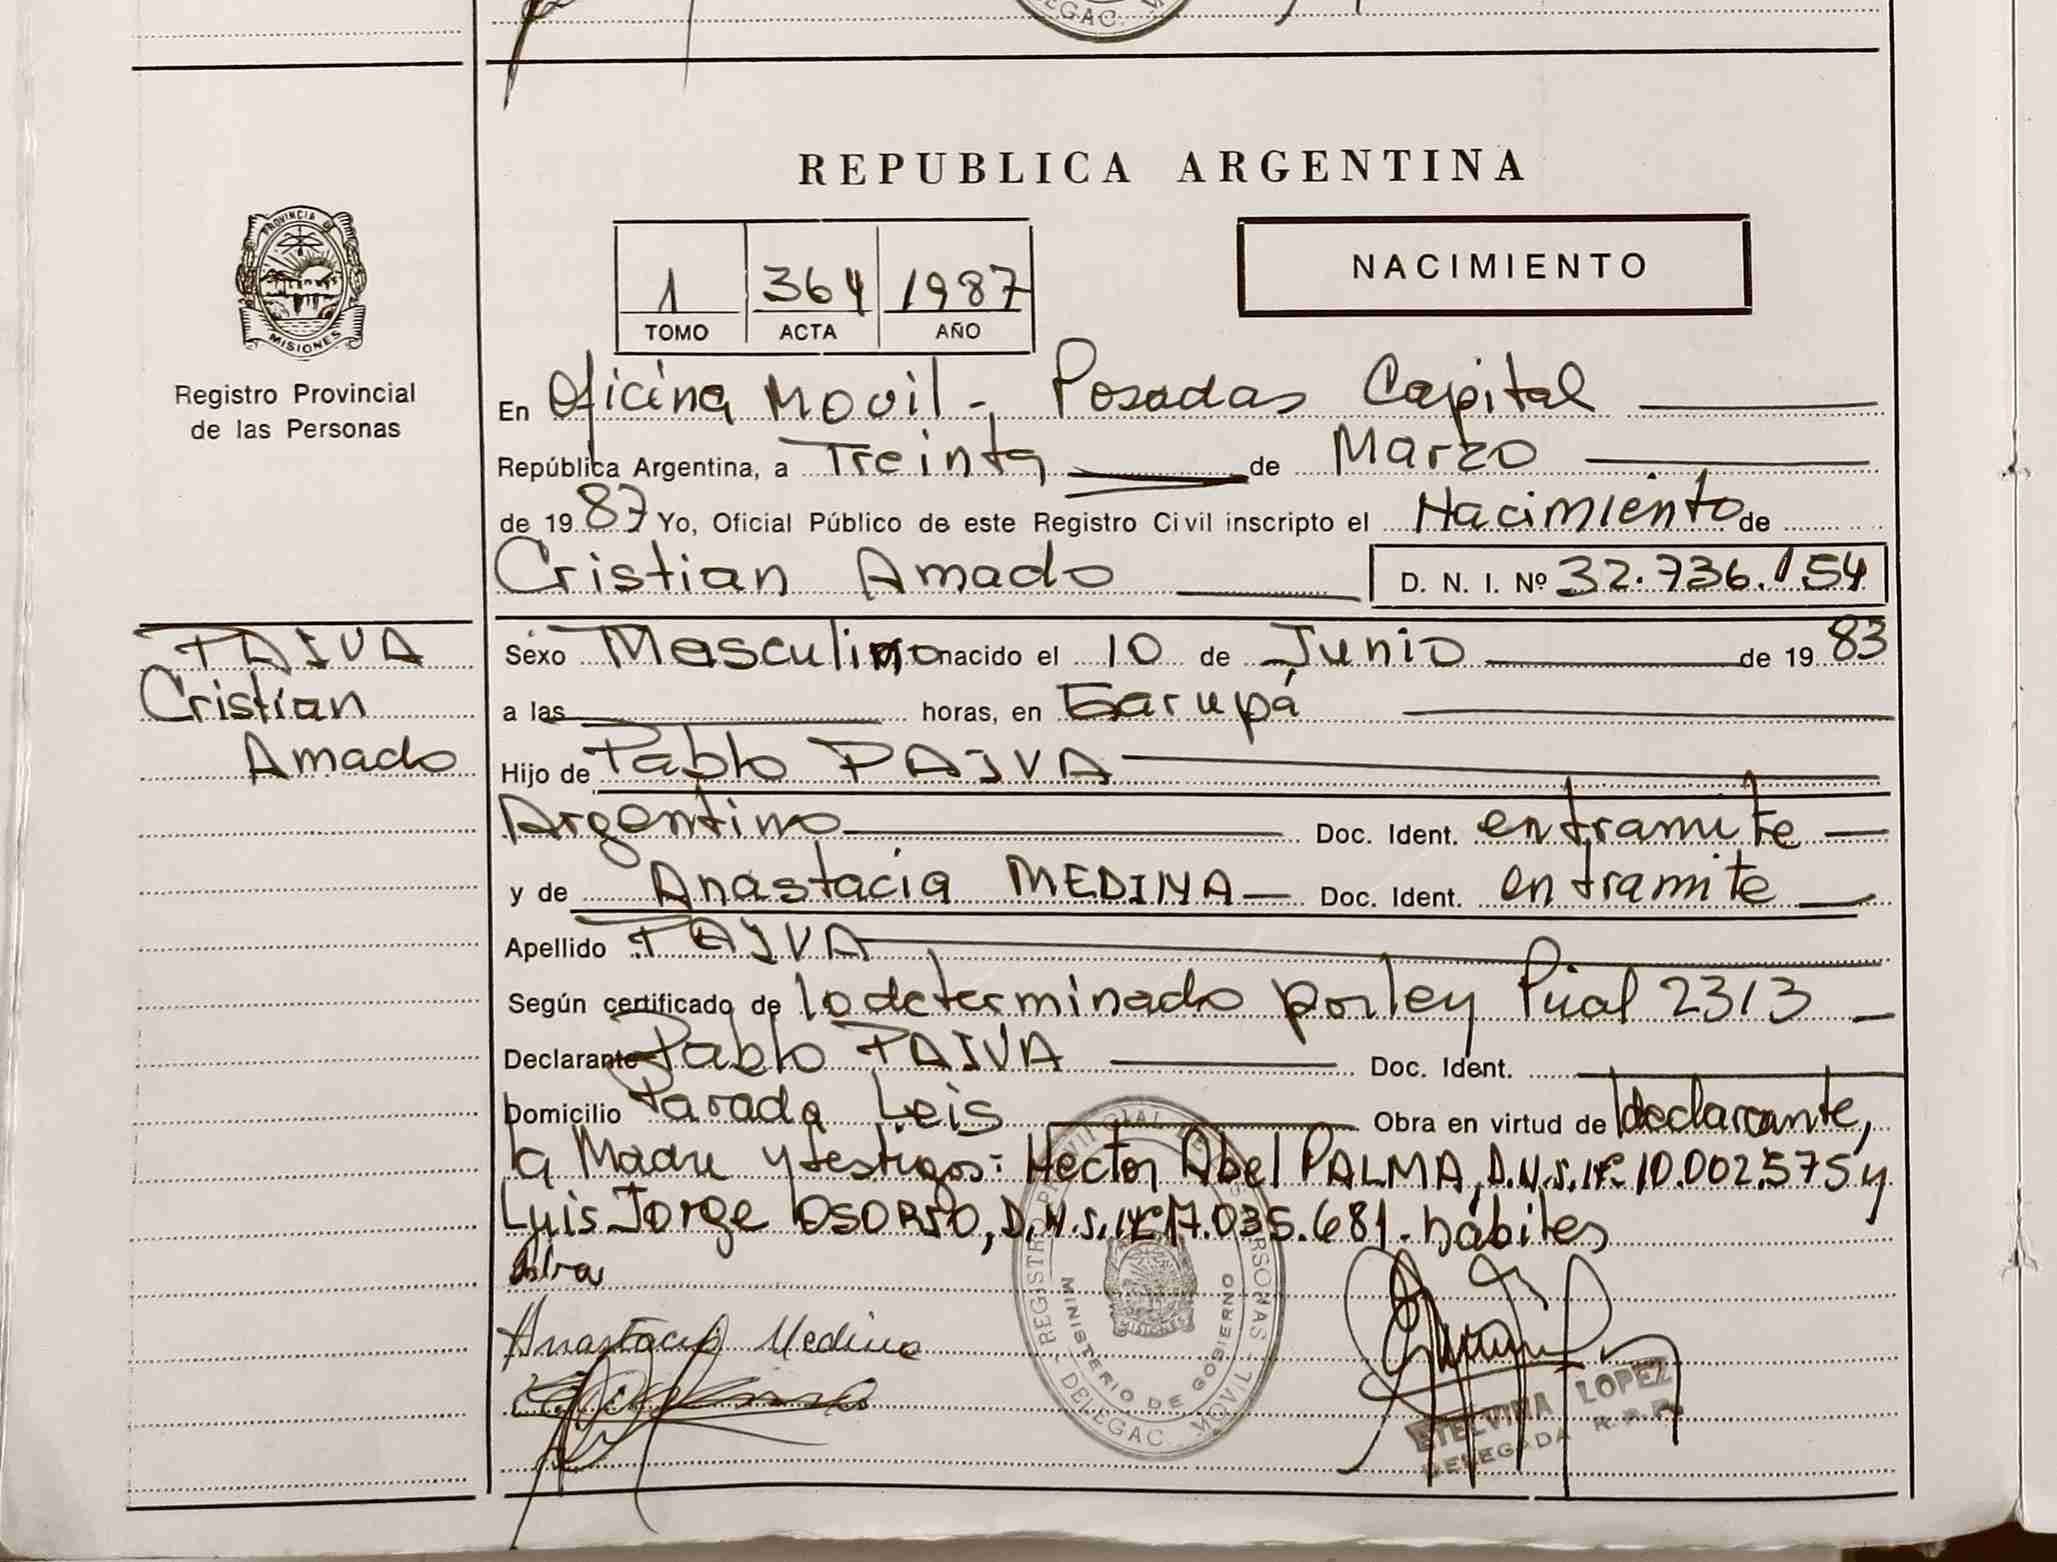 DELEGAC.
REPUBLICA ARGENTINA
PROVINCIA DE
MISIONES
Registro Provincial
de las Personas
1 364 1987
TOMO ACTA AÑO
NACIMIENTO
En Oficina Movil - Posadas Capital
República Argentina, a Treinta de Marzo
de 1987 Yo, Oficial Público de este Registro Civil inscripto el Nacimiento de
Cristian Amado D. N. I. Nº 32.736.154
PAIVA
Cristian
Amado
Sexo Masculino nacido el 10 de Junio de 1983
a las horas, en Garupá
Hijo de Pablo PAIVA
Argentino Doc. Ident. en tramite
y de Anastacia MEDINA Doc. Ident. en tramite
Apellido PAIVA
Según certificado de lo determinado por ley Pcial 2313
Declarante Pablo PAIVA Doc. Ident.
Domicilio Parada Leis Obra en virtud de declarante,
la Madre y testigos: Hector Abel PALMA, D.N.I. Nº 10.002.575 y
Luis Jorge OSORIO, D.N.I. Nº 17.035.681. hábiles
Anastacia Medina
REGISTRO PROVINCIAL DE LAS PERSONAS
MINISTERIO DE GOBIERNO
MISIONES
DELEGAC. MOVIL
ETELVINA LOPEZ
DELEGADA R.P.P.